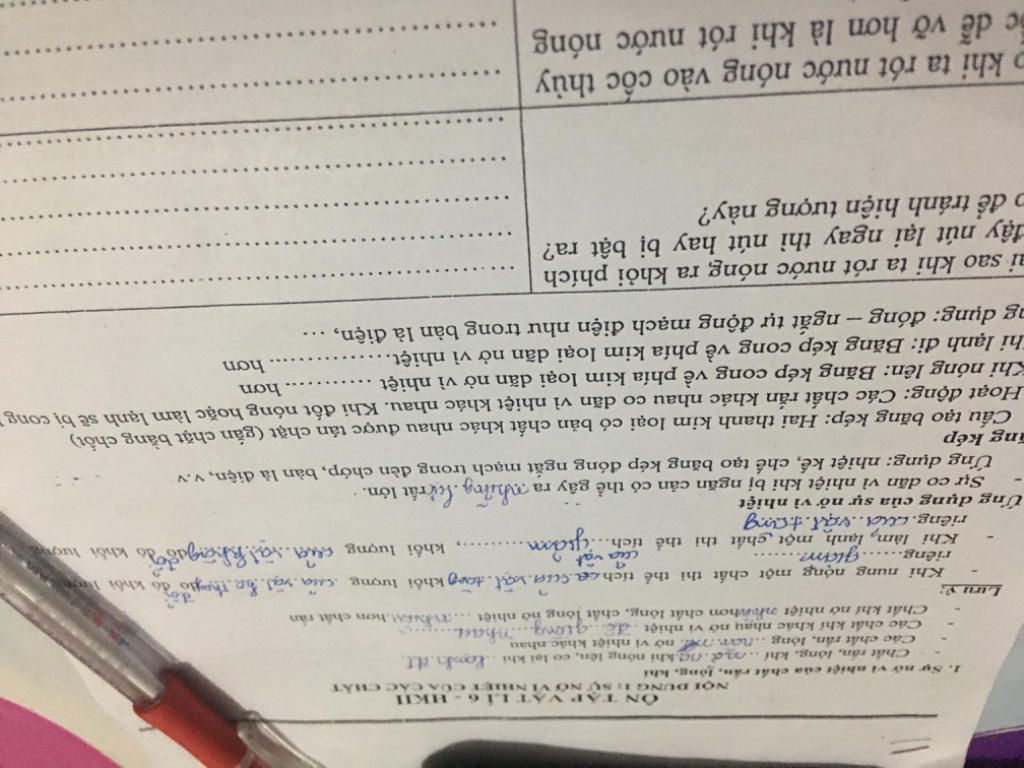 ÔN TẬP VẬT LÍ 6 - HKII
NỘI DUNG 1: SỰ NỞ VÌ NHIỆT CỦA CÁC CHẤT
1. Sự nở vì nhiệt của chất rắn, lỏng, khí
- Chất rắn, lỏng, khí ...nở ra khi nóng lên, co lại khi ...lạnh đi
- Các chất rắn, lỏng ... nở vì nhiệt khác nhau
- Các chất khí khác nhau nở vì nhiệt ... giống nhau
- Chất khí nở vì nhiệt nhiều hơn chất lỏng, chất lỏng nở vì nhiệt ...nhiều hơn chất rắn
Lưu ý:
- Khi nung nóng một chất thì thể tích của vật tăng khối lượng của vật ko thay đổi do đó khối lượng
riêng......giảm......
- Khi làm lạnh một chất thì thể tích... của vật giảm........, khối lượng của vật không đổi do đó khối lượng
riêng của vật tăng
Ứng dụng của sự nở vì nhiệt
- Sự co dãn vì nhiệt khi bị ngăn cản có thể gây ra những lực rất lớn.
Ứng dụng: nhiệt kế, chế tạo băng kép đóng ngắt mạch trong đèn chớp, bàn là điện, v.v
ng Kép
Cấu tạo băng kép: Hai thanh kim loại có bản chất khác nhau được tán chặt (gắn chặt bằng chốt)
Hoạt động: Các chất rắn khác nhau co dãn vì nhiệt khác nhau. Khi đốt nóng hoặc làm lạnh sẽ bị cong
Khi nóng lên: Băng kép cong về phía kim loại dãn nở vì nhiệt ............ hơn
hi lạnh đi: Băng kép cong về phía kim loại dãn nở vì nhiệt................ hơn
ng dụng: đóng – ngắt tự động mạch điện như trong bàn là điện, ...
ại sao khi ta rót nước nóng ra khỏi phích
đậy nút lại ngay thì nút hay bị bật ra?
o để tránh hiện tượng này?
o khi ta rót nước nóng vào cốc thủy
ốc dễ vỡ hơn là khi rót nước nóng